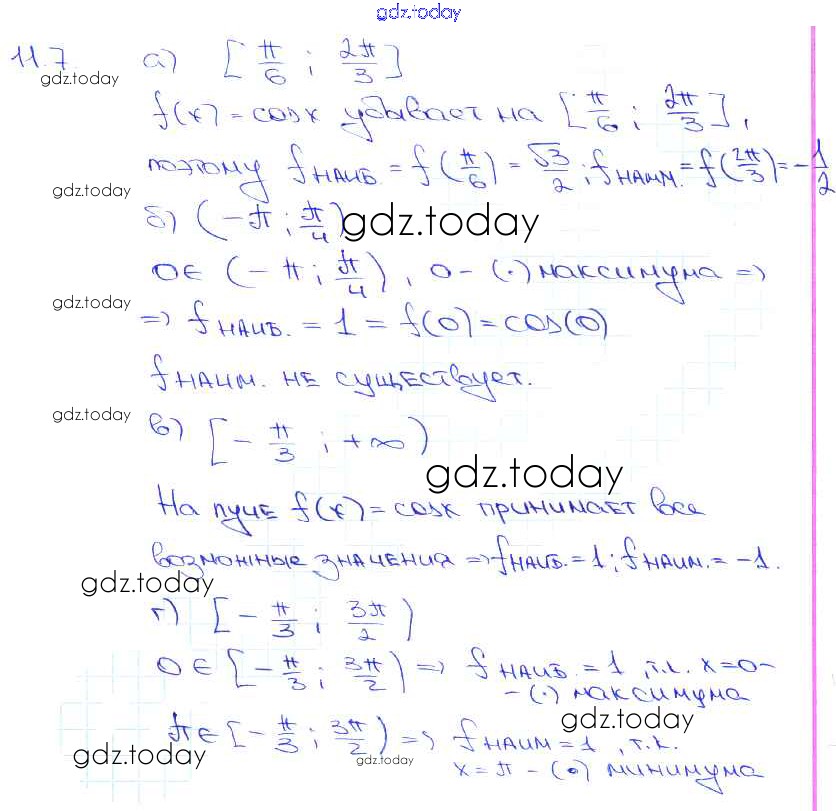 gdz.today
11.7. а) [π/6 ; 2π/3]
gdz.today
f(x) = cosx убывает на [π/6 ; 2π/3],
поэтому fнаиб. = f(π/6) = √3/2 ; fнаим. = f(2π/3) = -1/2
gdz.today
б) (-π ; π/4)
gdz.today
0 ∈ (-π ; π/4), 0 - (·) максимума =>
gdz.today
=> fнаиб. = 1 = f(0) = cos(0)
fнаим. не существует.
gdz.today
в) [-π/3 ; +∞)
gdz.today
На луче f(x) = cosx принимает все
возможные значения => fнаиб. = 1 ; fнаим. = -1.
gdz.today
г) [-π/3 ; 3π/2)
0 ∈ [-π/3 ; 3π/2) => fнаиб. = 1, т.к. x = 0 -
- (·) максимума
gdz.today
π ∈ [-π/3 ; 3π/2) => fнаим = 1, т.к.
gdz.today
gdz.today
x = π - (·) минимума